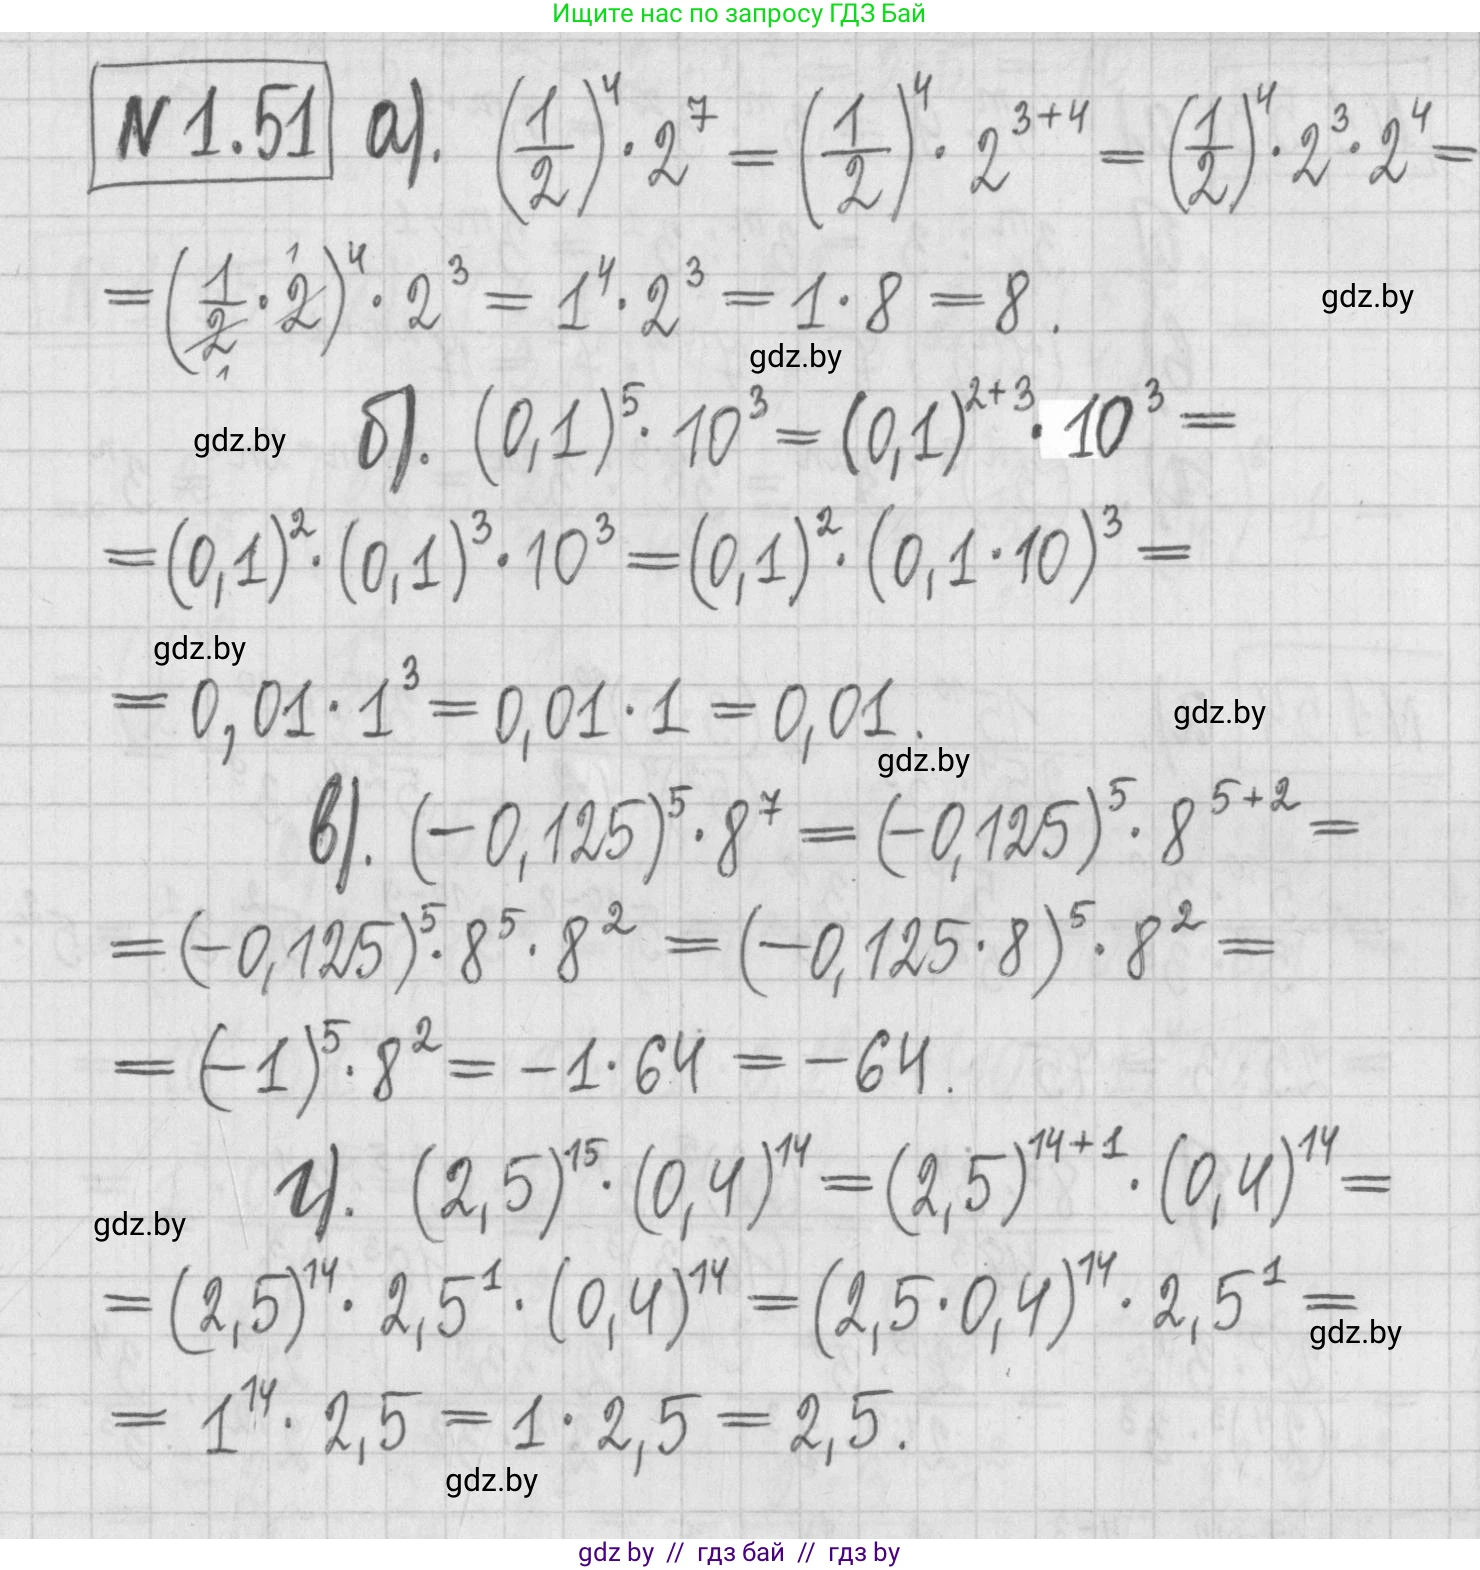 Ищите нас по запросу ГДЗ Бай
N 1.51 а). (1/2)^4 · 2^7 = (1/2)^4 · 2^{3+4} = (1/2)^4 · 2^3 · 2^4 =
= (1/2 · 2)^4 · 2^3 = 1^4 · 2^3 = 1 · 8 = 8.
gdz.by
gdz.by
gdz.by
б). (0,1)^5 · 10^3 = (0,1)^{2+3} · 10^3 =
= (0,1)^2 · (0,1)^3 · 10^3 = (0,1)^2 · (0,1 · 10)^3 =
gdz.by
= 0,01 · 1^3 = 0,01 · 1 = 0,01.
gdz.by
gdz.by
в). (-0,125)^5 · 8^7 = (-0,125)^5 · 8^{5+2} =
= (-0,125)^5 · 8^5 · 8^2 = (-0,125 · 8)^5 · 8^2 =
= (-1)^5 · 8^2 = -1 · 64 = -64.
г). (2,5)^{15} · (0,4)^{14} = (2,5)^{14+1} · (0,4)^{14} =
gdz.by
= (2,5)^{14} · 2,5^1 · (0,4)^{14} = (2,5 · 0,4)^{14} · 2,5^1 =
gdz.by
= 1^{14} · 2,5 = 1 · 2,5 = 2,5.
gdz.by
gdz by // гдз бай // гдз by